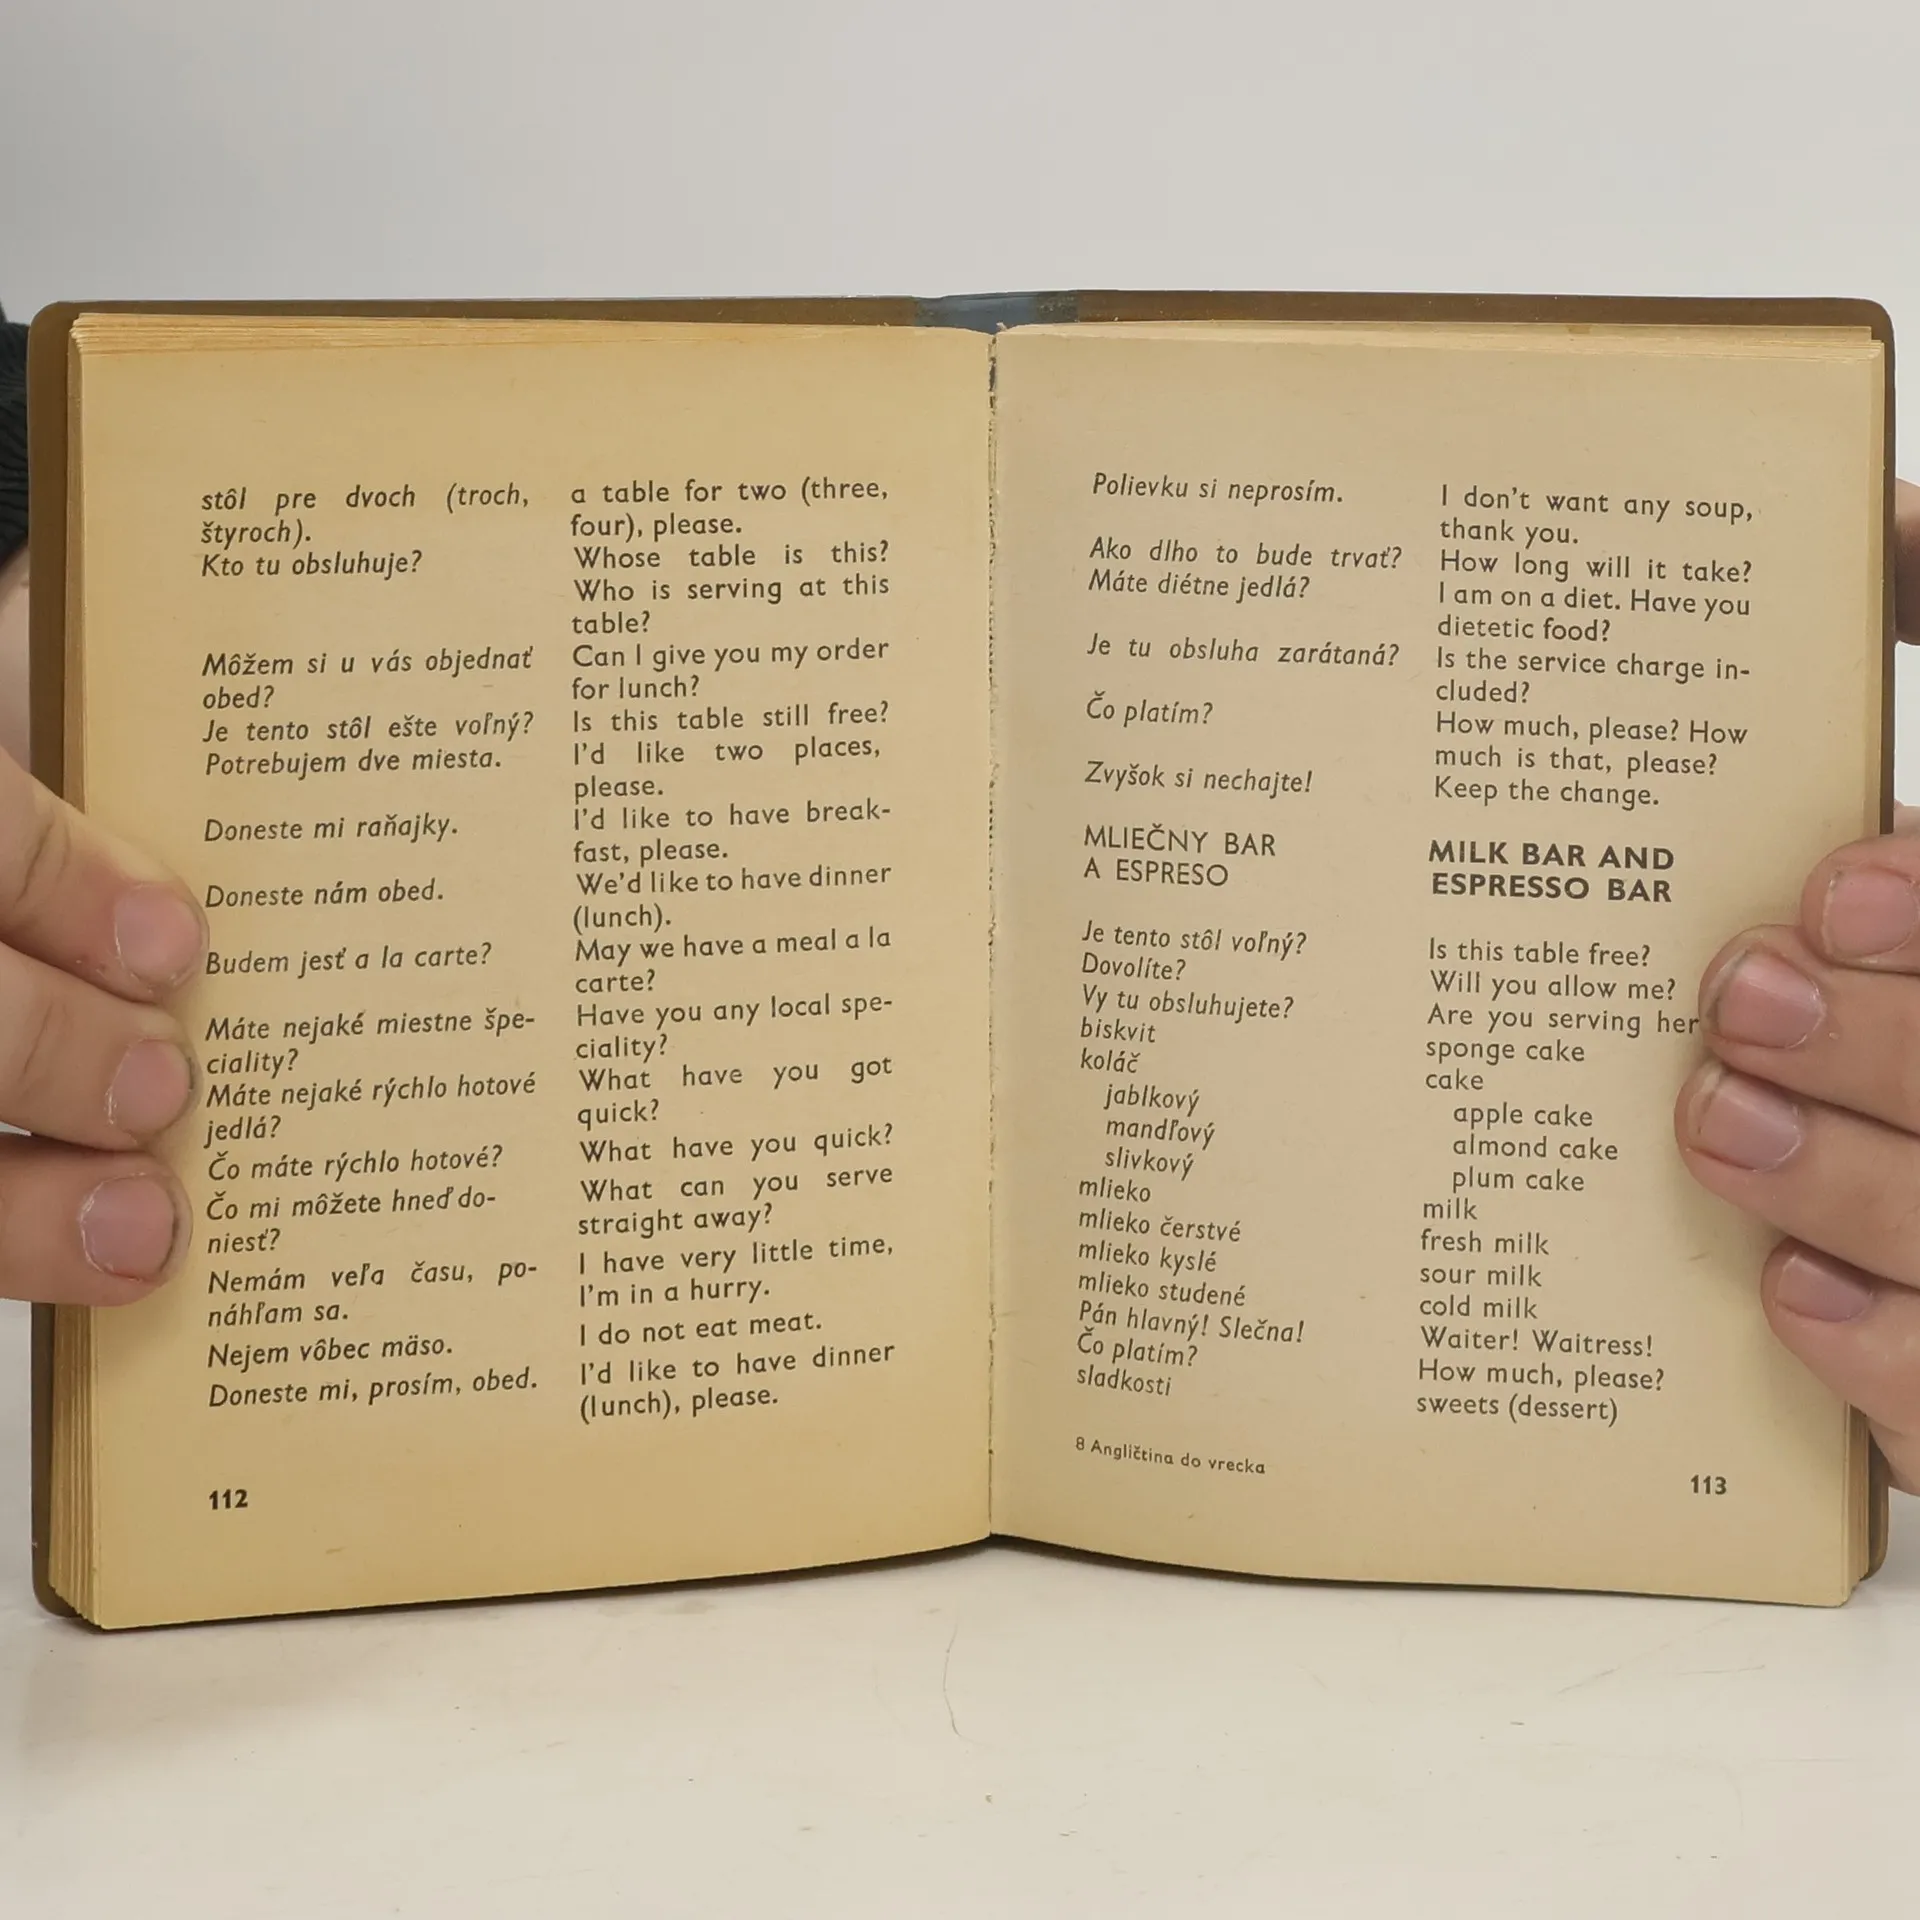 stôl pre dvoch (troch,
štyroch).
Kto tu obsluhuje?
Môžem si u vás objednať
obed?
Je tento stôl ešte voľný?
Potrebujem dve miesta.
Doneste mi raňajky.
Doneste nám obed.
Budem jesť a la carte?
Máte nejaké miestne špe-
ciality?
Máte nejaké rýchlo hotové
jedlá?
Čo máte rýchlo hotové?
Čo mi môžete hneď do-
niesť?
Nemám veľa času, po-
náhľam sa.
Nejem vôbec mäso.
Doneste mi, prosím, obed.
a table for two (three,
four), please.
Whose table is this?
Who is serving at this
table?
Can I give you my order
for lunch?
Is this table still free?
I'd like two places,
please.
I'd like to have break-
fast, please.
We'd like to have dinner
(lunch).
May we have a meal a la
carte?
Have you any local spe-
ciality?
What have you got
quick?
What have you quick?
What can you serve
straight away?
I have very little time,
I'm in a hurry.
I do not eat meat.
I'd like to have dinner
(lunch), please.
112
Polievku si neprosím.
Ako dlho to bude trvať?
Máte diétne jedlá?
Je tu obsluha zarátaná?
Čo platím?
Zvyšok si nechajte!
MLIEČNY BAR
A ESPRESO
Je tento stôl voľný?
Dovolíte?
Vy tu obsluhujete?
biskvit
koláč
jablkový
mandľový
slivkový
mlieko
mlieko čerstvé
mlieko kyslé
mlieko studené
Pán hlavný! Slečna!
Čo platím?
sladkosti
I don't want any soup,
thank you.
How long will it take?
I am on a diet. Have you
dietetic food?
Is the service charge in-
cluded?
How much, please? How
much is that, please?
Keep the change.
MILK BAR AND
ESPRESSO BAR
Is this table free?
Will you allow me?
Are you serving
sponge cake
cake
apple cake
almond cake
plum cake
milk
fresh milk
sour milk
cold milk
Waiter! Waitress!
How much, please?
sweets (dessert)
8 Angličtina do vrecka
113